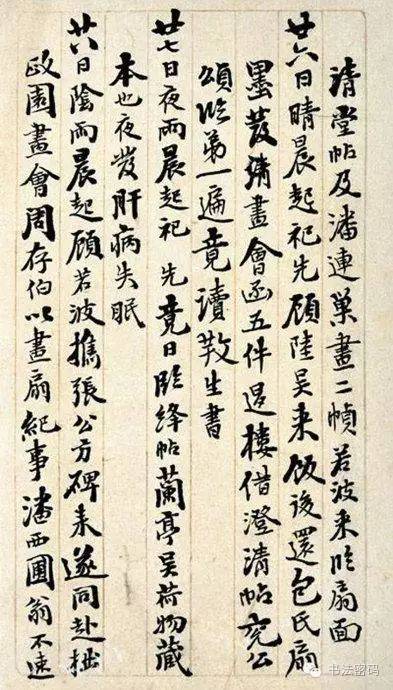 清堂帖及潘連巢畫二幀若波來臨扇面
廿六日晴晨起祀先顧陸吴来飯後還包氏扇
墨葭請畫會函五件過樓借澄清帖兖公
頌臨第一遍竟讀敩生書
廿七日夜雨晨起祀先竟日臨絳帖蘭亭吴荷物藏
本也夜發肝病失眠
廿八日陰雨晨起顧若波攜張公方碑来遂同赴拙
政園畫會周存伯以畫扇紀事潘西圃翁不速
书法密码